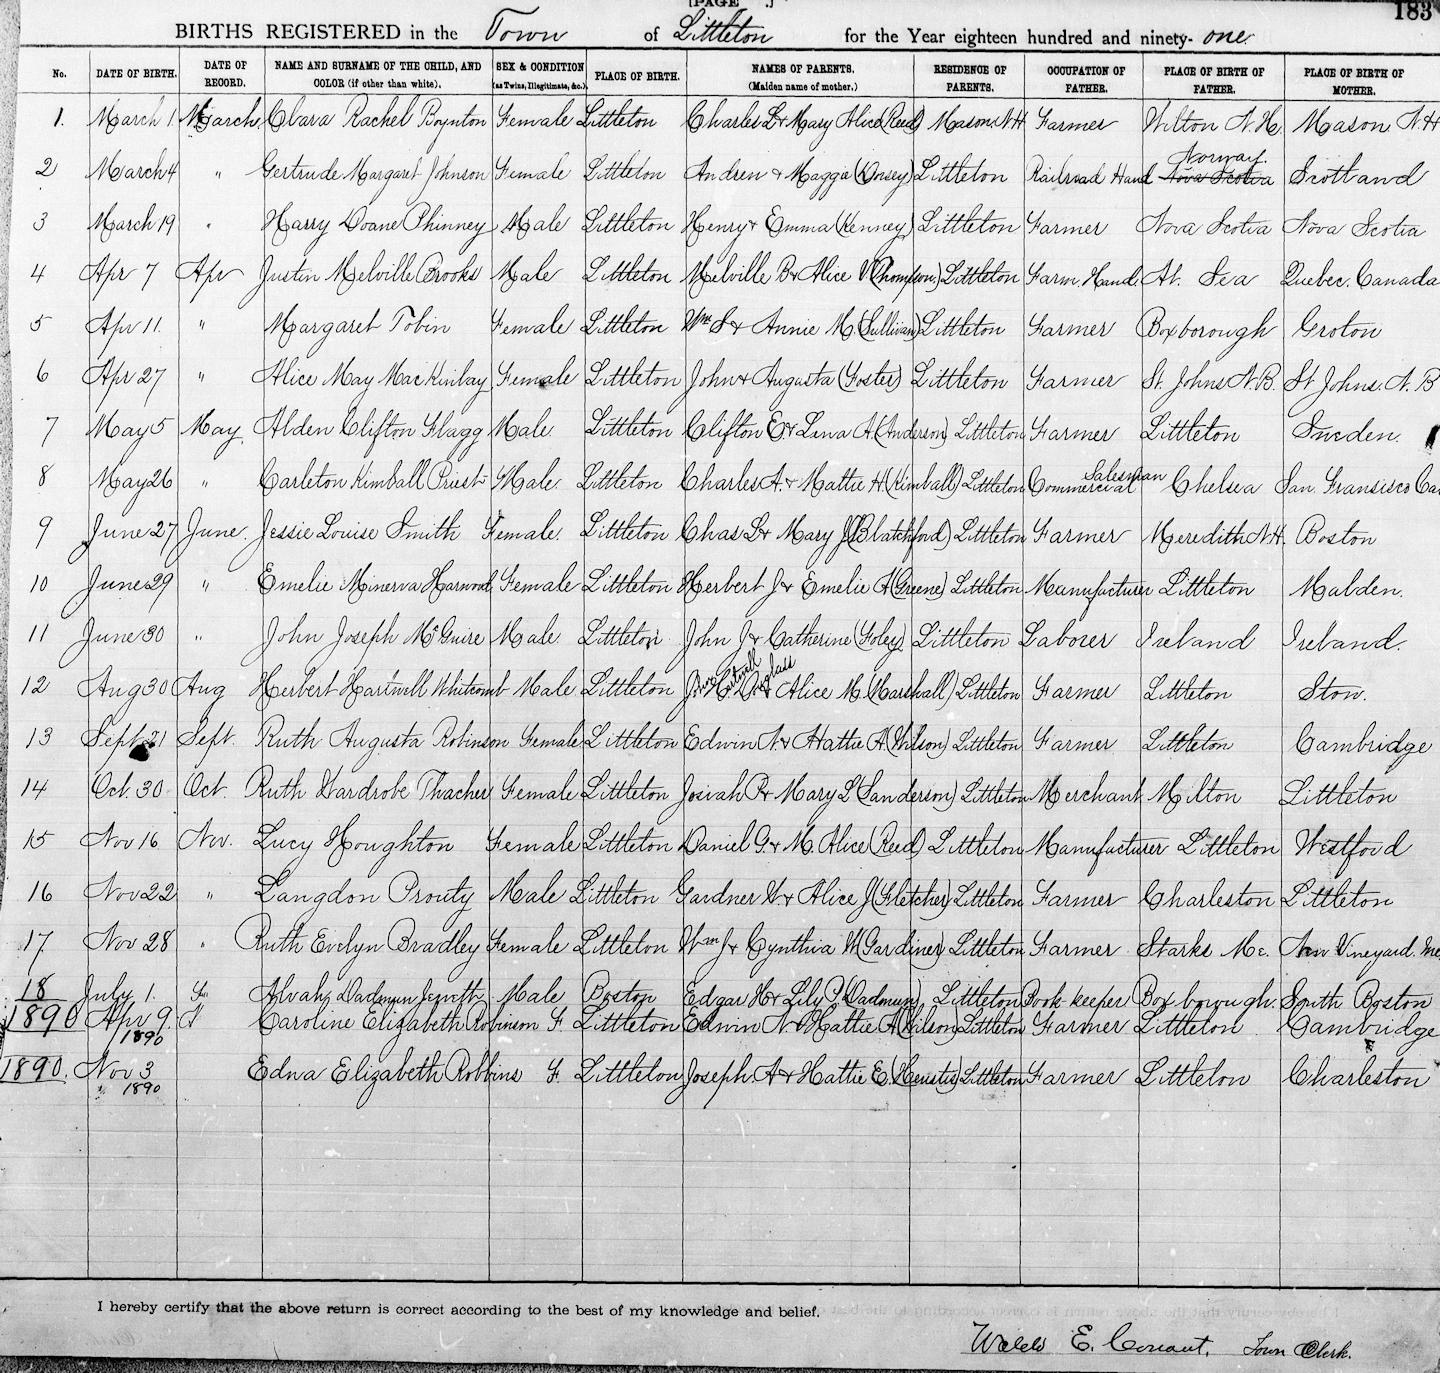 [PAGE .]
183
BIRTHS REGISTERED in the Town of Littleton for the Year eighteen hundred and ninety- one
No. DATE OF BIRTH. DATE OF RECORD. NAME AND SURNAME OF THE CHILD, AND COLOR (if other than white). SEX & CONDITION (as Twins, Illegitimate, &c.) PLACE OF BIRTH. NAMES OF PARENTS. (Maiden name of mother.) RESIDENCE OF PARENTS. OCCUPATION OF FATHER. PLACE OF BIRTH OF FATHER. PLACE OF BIRTH OF MOTHER.
1. March 1 March Clara Rachel Boynton Female Littleton Charles L & Mary Alice (Reed) Mason N H Farmer Wilton N.H. Mason N.H
2 March 4 " Gertrude Margaret Johnson Female Littleton Andrew & Maggie Littleton Railroad Hand Norway. Nova Scotia Scotland
3 March 19 " Harry Doane Phinney Male Littleton Henry & Emma (Kenney) Littleton Farmer Nova Scotia Nova Scotia
4 Apr 7 Apr Justin Melville Brooks Male Littleton Melville B & Alice V (Thompson) Littleton Farm. Hand. At Sea Quebec. Canada
5 Apr 11. " Margaret Tobin Female Littleton Wm S & Annie M (Sullivan) Littleton Farmer Boxborough Groton
6 Apr 27 " Alice May MacKinlay Female Littleton John & Augusta (Foster) Littleton Farmer St. Johns N.B. St Johns. N. B
7 May 5 May Alden Clifton Flagg Male Littleton Clifton E. & Lena A. (Anderson) Littleton Farmer Littleton Sweden.
8 May 26 " Carleton Kimball Priest Male Littleton Charles A. & Mattie H (Kimball) Littleton Commercial Salesman Chelsea San Fransisco Cal
9 June 27 June. Jessie Louise Smith Female. Littleton Chas L & Mary J (Blatchford) Littleton Farmer Meredith N.H. Boston
10 June 29 " Emelie Minerva Harwood Female Littleton Herbert J & Emelie A (Greene) Littleton Manufacturer Littleton Malden.
11 June 30 " John Joseph McGuire Male Littleton John J & Catherine (Foley) Littleton Laborer Ireland Ireland.
12 Aug 30 Aug Herbert Hartwell Whitcomb Male Littleton & Alice M. (Marshall) Littleton Farmer Littleton Stow.
13 Sept 21 Sept. Ruth Augusta Robinson Female Littleton Edwin N. & Hattie A (Wilson) Littleton Farmer Littleton Cambridge
14 Oct. 30 Oct. Ruth Wardrobe Thacher Female Littleton Josiah P & Mary L (Sanderson) Littleton Merchant Milton Littleton
15 Nov 16 Nov. Lucy Houghton Female Littleton Daniel G. & M. Alice (Reed) Littleton Manufacturer Littleton Westford
16 Nov 22 " Langdon Prouty Male Littleton Gardner W & Alice J (Fletcher) Littleton Farmer Charleston Littleton
17 Nov 28 " Ruth Evelyn Bradley Female Littleton Wm J & Cynthia W (Gardiner) Littleton Farmer Starks Me. New Vineyard. Me.
18 July 1. Alvah Dadmun Jewett Male Boston Edgar H & Lily P. (Dadmun) Littleton Book keeper Boxborough. South Boston
1890 Apr 9. 1890 Caroline Elizabeth Robinson F. Littleton Edwin N & Hattie A (Wilson) Littleton Farmer Littleton Cambridge
1890. Nov 3 " 1890 Edna Elizabeth Robbins F. Littleton Joseph. A & Hattie E (Heustis) Littleton Farmer Littleton Charleston
I hereby certify that the above return is correct according to the best of my knowledge and belief.
E. Conant, Town Clerk.